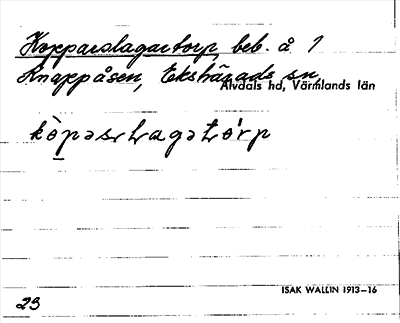 Kopparslagartorp, beb. å 1
Knappåsen, Ekshärads sn
Älvdals hd, Värmlands län
kò̱pəsɩaɡətórp
ISAK WALLIN 1913–16
23